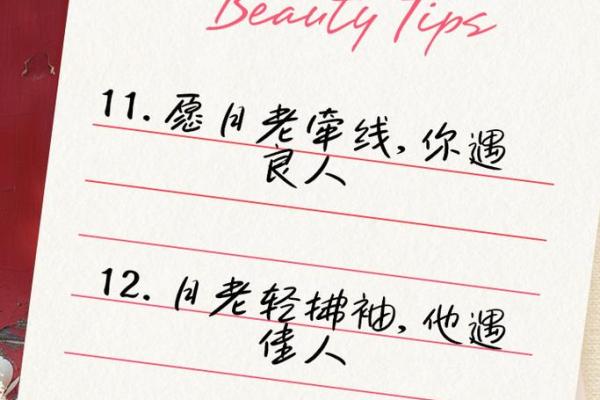 Beauty Tips
11. 愿月老牵线,你遇
良人
12. 月老轻拂袖,他遇
佳人